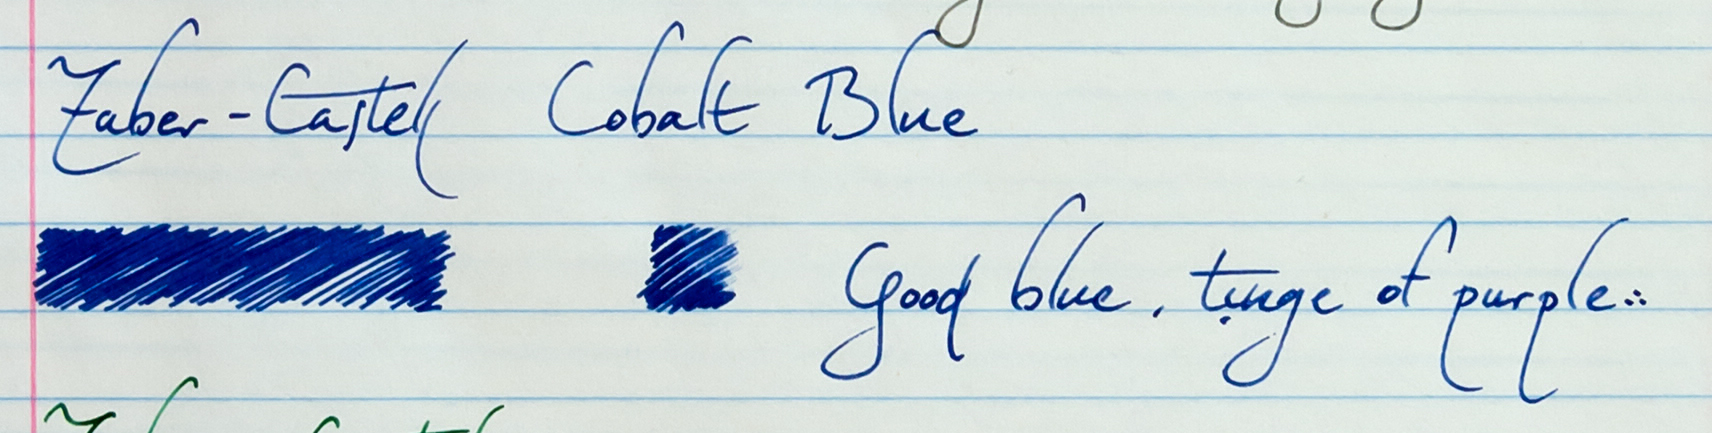 Faber-Castell Cobalt Blue
Good blue, tinge of purple..